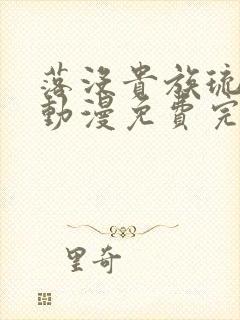 落沒貴族琉
動漫免費完
里奇